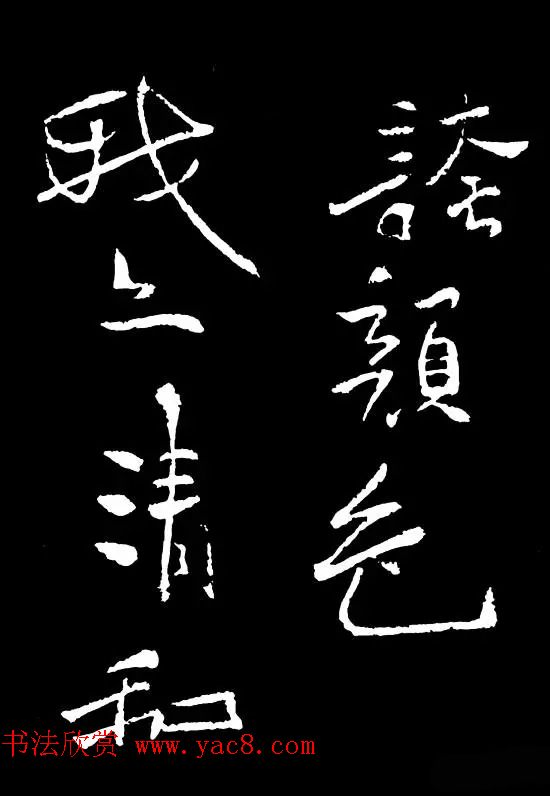 誇顏色
我上清和
书法欣赏 www.yac8.com